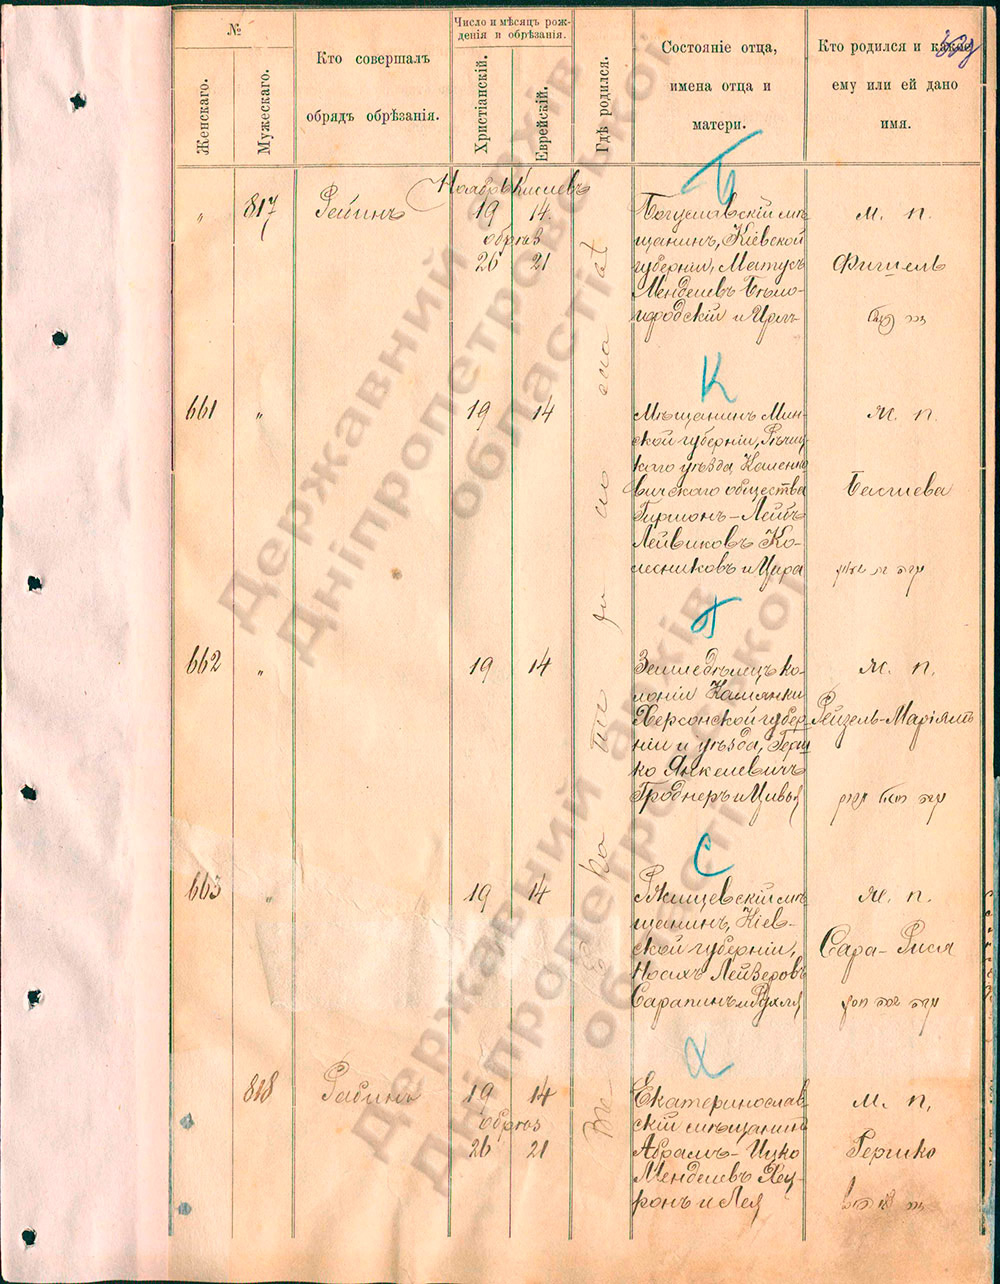 №
Женскаго.
Мужескаго.
Кто совершалъ
обрядъ обрѣзанія.
Число и мѣсяцъ рож-
денія и обрѣзанія.
Христіанскій.
Еврейскій.
Гдѣ родился.
Состояніе отца,
имена отца и
матери.
Кто родился и какое
ему или ей дано
имя.
Ноябрь Кислевъ
Б
„ 817 Рейинъ 19 14
обрѣз
26 21
Богуславскій мѣ-
щанинъ, Кіевской
губерніи, Матусъ
Менделевъ Бѣло-
городскій и
м. п.
Фишель
К
661 „ 19 14
Мѣщанинъ Мин-
ской губерніи, Рѣчиц-
каго уѣзда, Каленко-
вичскаго общества
Гиршонъ-Лейбъ
Лейвиковъ Ко-
лесниковъ и Цира
ж. п.
Басшева
Г
662 „ 19 14
Земледѣлецъ ко-
лоніи Камянки
Херсонской губер-
ніи и уѣзда, Герш-
ко Янкелевичъ
Гроднеръ и Цивья
ж. п.
Рейзель-Маріямъ
С
663 „ 19 14
Ржищевскій мѣ-
щанинъ, Кіев-
ской губерніи,
Іосихъ Лейзеровъ
Сарапинъ и Рухля
ж. п.
Сара-Рися
Х
818 Рабинъ 19 14
обрѣз
26 21
Екатеринослав-
скій мѣщанинъ
Абрамъ-Ицко
Менделевъ Хей-
ронъ и Лея
м. п.
Гершко
Державний архів
Дніпропетровської
області
Державний архів
Дніпропетровської
області